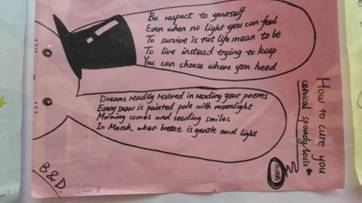 How to cure you
cervical spondylosis
Be respect to yourself
Even when no light you can feel
To survive is not life mean to be
To live instead trying to keep
You can choose where you heed
Dreams readily revived in reading your poems
Every snow is painted pale with moonlight
Morning combs and seeding smiles
In March, when breeze is gentle and light
B&D.